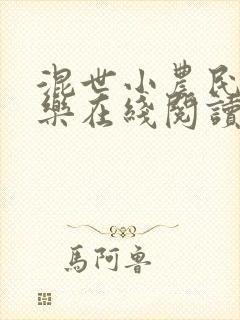 混世小農民
樂在綫閱讀
馬阿魯